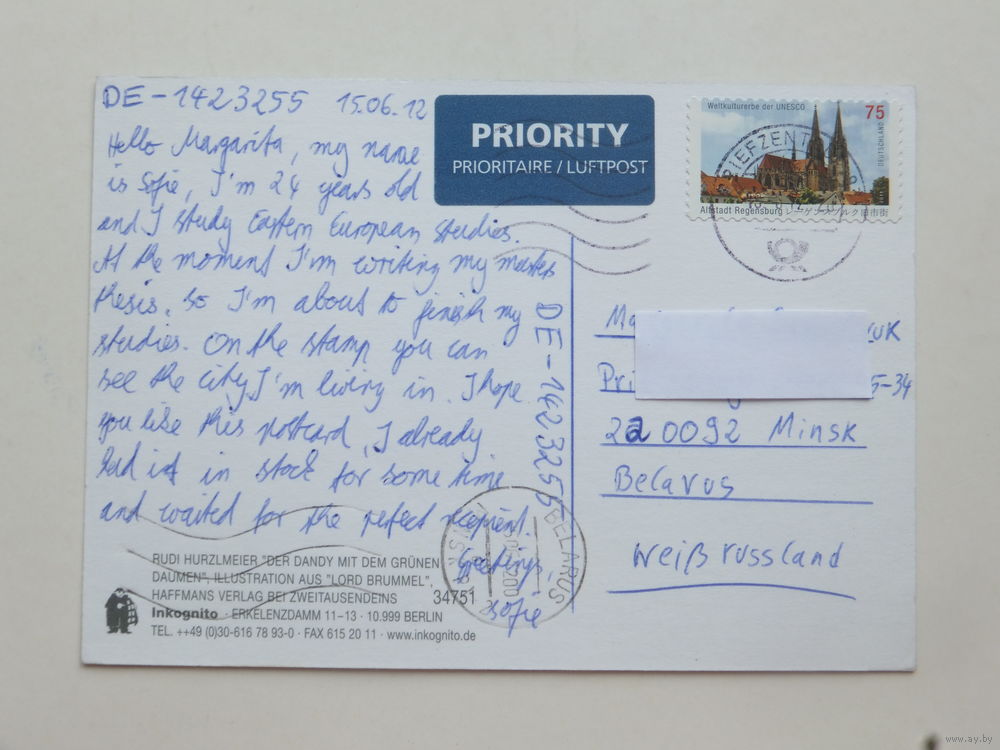 DE-1423255 15.06.12
Hello Margarita, my name
is Sofie, I'm 24 years old
and I study Eastern European Studies.
At the moment I'm writing my masters
thesis, so I'm about to finish my
studies. On the stamp you can
see the city I'm living in. I hope
you like this postcard, I already
had it in stock for some time
and waited for the perfect recipient.
Greetings,
Sofie
DE-1423255
PRIORITY
PRIORITAIRE / LUFTPOST
Weltkulturerbe der UNESCO
75
DEUTSCHLAND
Altstadt Regensburg レーゲンスブルク旧市街
BRIEFZENTR
Ma
uk
Pri
5-34
220092 Minsk
Belarus
Weißrussland
BELARUS
MINSK
RUDI HURZLMEIER "DER DANDY MIT DEM GRÜNEN
DAUMEN", ILLUSTRATION AUS "LORD BRUMMEL",
HAFFMANS VERLAG BEI ZWEITAUSENDEINS
34751
Inkognito · ERKELENZDAMM 11–13 · 10.999 BERLIN
TEL. ++49 (0)30-616 78 93-0 · FAX 615 20 11 · www.inkognito.de
www.ay.by